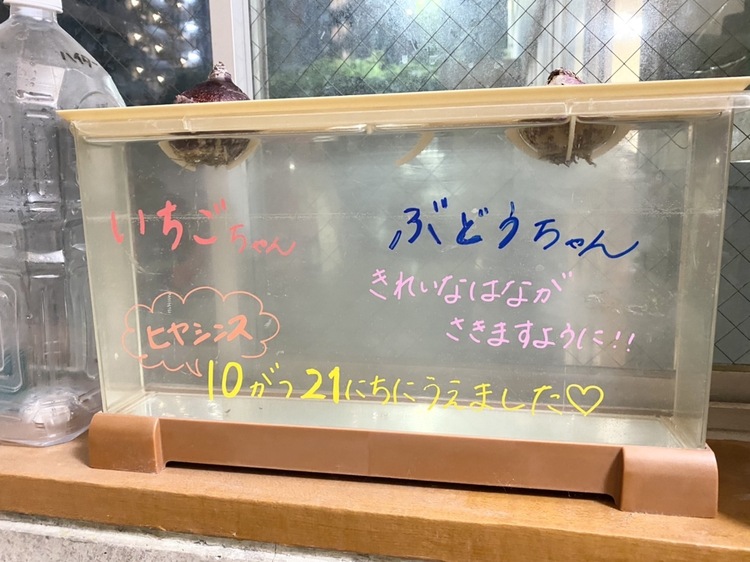 いちごちゃん
ぶどうちゃん
きれいなはなが
さきますように!!
ヒヤシンス
10がつ21にちにうえました♡